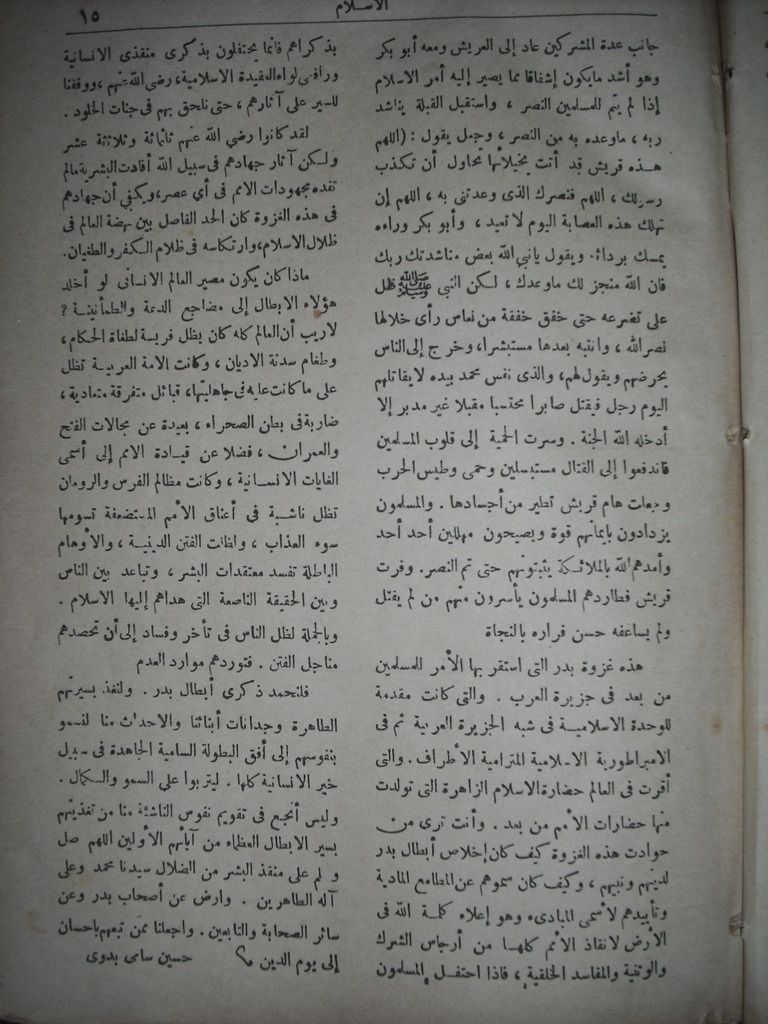 الاسلام
١٥
جانب عدة المشركين عاد إلى العريش ومعه أبو بكر
وهو أشد مايكون إشفاقا مما يصير إليه أمر الاسلام
إذا لم يتم للمسلمين النصر ، واستقبل القبلة يناشد
ربه ، ماوعده به من النصر ، وجعل يقول : (اللهم
هذه قريش قد أتت بخيلائها تحاول أن تكذب
رسولك ، اللهم فنصرك الذى وعدتنى به ، اللهم إن
تهلك هذه العصابة اليوم لا تعبد ، وأبو بكر وراءه
يمسك بردائه ويقول يانبي الله بعض مناشدتك ربك
فان الله منجز لك ماوعدك ، لكن النبي ﷺ ظل
على تضرعه حتى خفق خفقة من نعاس رأى خلالها
نصر الله ، وانتبه بعدها مستبشرا، وخرج إلى الناس
يحرضهم ويقول لهم، والذى نفس محمد بيده لايقاتلهم
اليوم رجل فيقتل صابرا محتسبا مقبلا غير مدبر إلا
أدخله الله الجنة . وسرت الحمية إلى قلوب المسلمين
فاندفعوا إلى القتال مستبسلين وحمى وطيس الحرب
وجعلت هام قريش تطير من أجسادها . والمسلمون
يزدادون بايمانهم قوة ويصيحون مهللين أحد أحد
وأمدهم الله بالملائكة يثبتونهم حتى تم النصر. وفرت
قريش فطاردهم المسلمون يأسرون منهم من لم يقتل
ولم يساعفه حسن فراره بالنجاة
هذه غزوة بدر التى استقر بها الأمر للمسلمين
من بعد فى جزيرة العرب . والتى كانت مقدمة
للوحدة الاسلامية فى شبه الجزيرة العربية ثم فى
الامبراطورية الاسلامية المترامية الأطراف . والتى
أقرت فى العالم حضارة الاسلام الزاهرة التى تولدت
منها حضارات الأمم من بعد . وأنت ترى من
حوادث هذه الغزوة كيف كان إخلاص أبطال بدر
لدينهم ونبيهم ، وكيف كان سموهم عن المطامع المادية
وتأييدهم لأسمى المبادىء وهو إعلاء كلمة الله فى
الأرض لانقاذ الأمم كلها من أرجاس الشرك
والوثنية والمفاسد الخلقية ، فاذا احتفل المسلمون
بذكراهم فانما يحتفلون بذكرى منقذى الانسانية
ورافعى لواء العقيدة الاسلامية، رضى الله عنهم ، ووفقنا
للسير على آثارهم ، حتى نلحق بهم فى جنات الخلود .
لقد كانوا رضى الله عنهم ثلثمائة وثلاثة عشر
ولكن آثار جهادهم فى سبيل الله أفادت البشرية مالم
تفده مجهودات الامم فى أي عصر، ويكفي أن جهادهم
فى هذه الغزوة كان الحد الفاصل بين نهضة العالم فى
ظلال الاسلام، وارتكاسه فى ظلام الكفر والطغيان.
ماذا كان يكون مصير العالم الانسانى لو أخلد
هؤلاء الابطال إلى مضاجع الدعة والطمأنينة ؟
لاريب أن العالم كله كان يظل فريسة لطغاة الحكام ،
وطغام سدنة الاديان ، وكانت الامة العربية تظل
على ما كانت عليه فى جاهليتها، قبائل متفرقة متعادية ،
ضاربة فى بطن الصحراء ، بعيدة عن مجالات الفتح
والعمران ، فضلا عن قيادة الامم إلى أسمى
الغايات الانسانية ، وكانت مظالم الفرس والرومان
تظل ناشبة فى أعناق الأمم المستضعفة تسومها
سوء العذاب ، ولظلت الفتن الدينية ، والأوهام
الباطلة تفسد معتقدات البشر ، وتباعد بين الناس
وبين الحقيقة الناصعة التى هداهم إليها الاسلام .
وبالجملة لظل الناس فى تأخر وفساد إلى أن تحصدهم
مناجل الفتن . فتوردهم موارد العدم
فلنحمد ذكرى أبطال بدر . ولنغذ بسيرتهم
الطاهرة وجدانات أبنائنا والاحداث منا لنسمو
بنفوسهم إلى أفق البطولة السامية الجاهدة فى سبيل
خير الانسانية كلها . ليتربوا على السمو والكمال .
وليس أنجع فى تقويم نفوس الناشئة منا من تغذيتهم
بسير الابطال العظماء من آبائهم الأولين اللهم صل
وسلم على منقذ البشر من الضلال سيدنا محمد وعلى
آله الطاهرين . وارض عن أصحاب بدر وعن
سائر الصحابة والتابعين . واجعلنا ممن تبعهم باحسان
إلى يوم الدين م حسين سامى بدوى